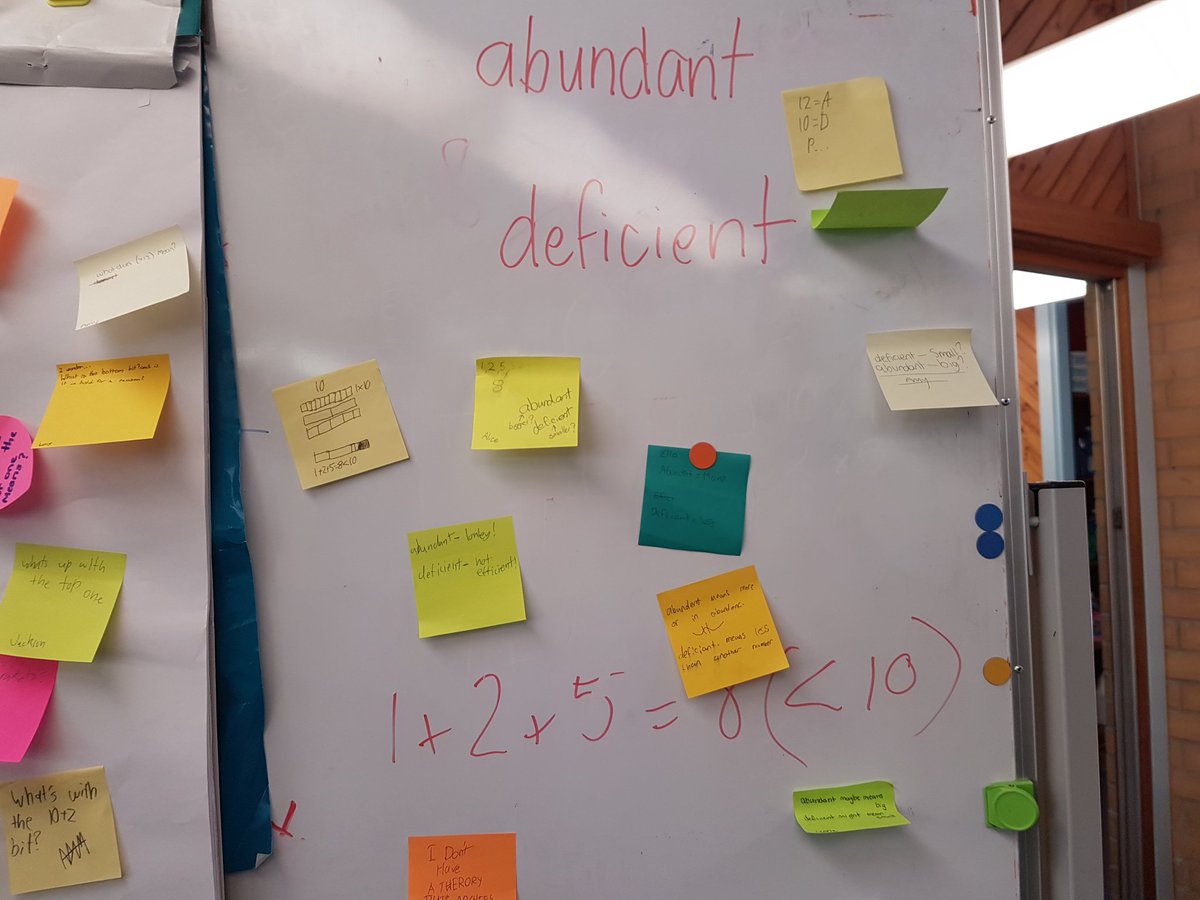 abundant
12=A
10=D
P...
deficient
what does (7,13) mean?
deficient - small?
abundant - big?
Amy
I wonder...
What is the bottom bit? and is
it on hold for a reason?
10
1×10
1+2+5=8<10
1,2,5
8
abundant
bigger?
deficient
smaller?
Alice
one the
means?
Ella
Abundant = More
Deficient = less
abundant - lonley!
deficient - not
efficient!
whats up with
the top one
Jackson
abundant means more
or in abundanc.
deficiant means less
than another number
1+2+5=8(<10)
what's with
the 10+2
bit?
abundant maybe means
big
deficient might mean
I DON'T
HAVE
A THERORY